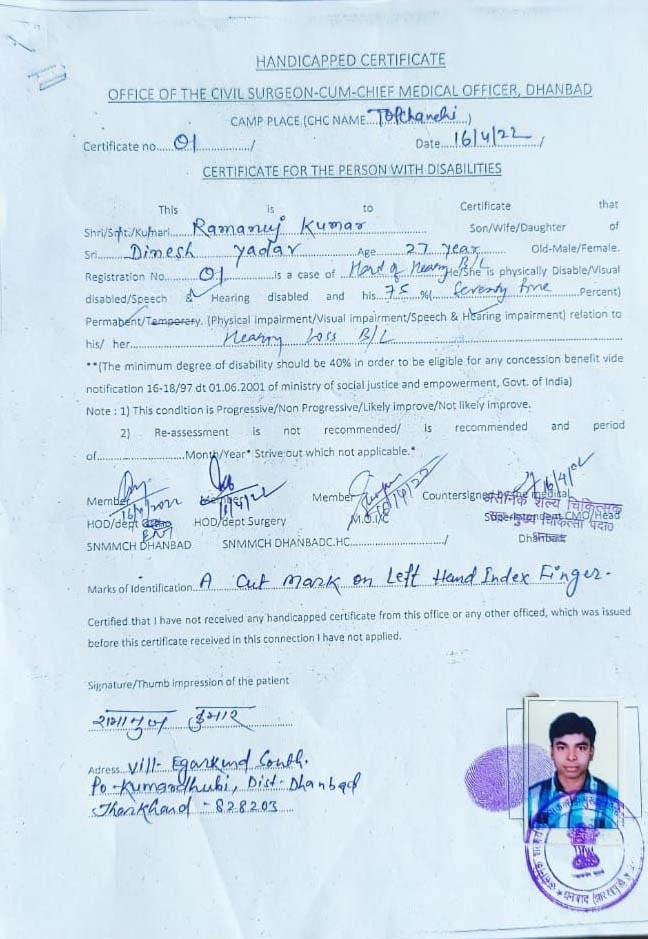 HANDICAPPED CERTIFICATE
OFFICE OF THE CIVIL SURGEON-CUM-CHIEF MEDICAL OFFICER, DHANBAD
CAMP PLACE.(CHC NAME...Topchanchi....)
Certificate no.....01............/ Date....16/4/22..../
CERTIFICATE FOR THE PERSON WITH DISABILITIES
This is to Certificate that
Shri/Smt./Kumari......Ramanuj Kumar............ Son/Wife/Daughter of
Sri......Dinesh yadav............Age......27 year........ Old-Male/Female.
Registration No......01............is a case of Hard of Hearing B/L He/She is physically Disable/Visual
disabled/Speech & Hearing disabled and his..75......%(...Seventy five......Percent)
Permabent/Temporary. (Physical impairment/Visual impairment/Speech & Hearing impairment) relation to
his/ her............Hearing Loss B/L............
**(The minimum degree of disability should be 40% in order to be eligible for any concession benefit vide
notification 16-18/97 dt 01.06.2001 of ministry of social justice and empowerment, Govt. of India)
Note : 1) This condition is Progressive/Non Progressive/Likely improve/Not likely improve.
2) Re-assessment is not recommended/ is recommended and period
of........................Month/Year* Strive out which not applicable.*
Member Member Member Countersigned by the medical
16/4/2022 16/4/22 16/4/22 16/4/22
HOD/dept ENT HOD/dept Surgery M.O.I/C Superintendent CMO/Head
असैनिक शल्य चिकित्सक
सह मुख्य चिकित्सा पदा०
धनबाद
SNMMCH DHANBAD SNMMCH DHANBADC.HC......................../ Dhanbad
Marks of Identification..A Cut mark on Left Hand Index Finger.
Certified that I have not received any handicapped certificate from this office or any other officed, which was issued
before this certificate received in this connection I have not applied.
Signature/Thumb impression of the patient
रामानुज कुमार
Adress..Vill- Egarkund South.
Po-Kumardhubi, Dist-Dhanbad
Jharkhand - 828203